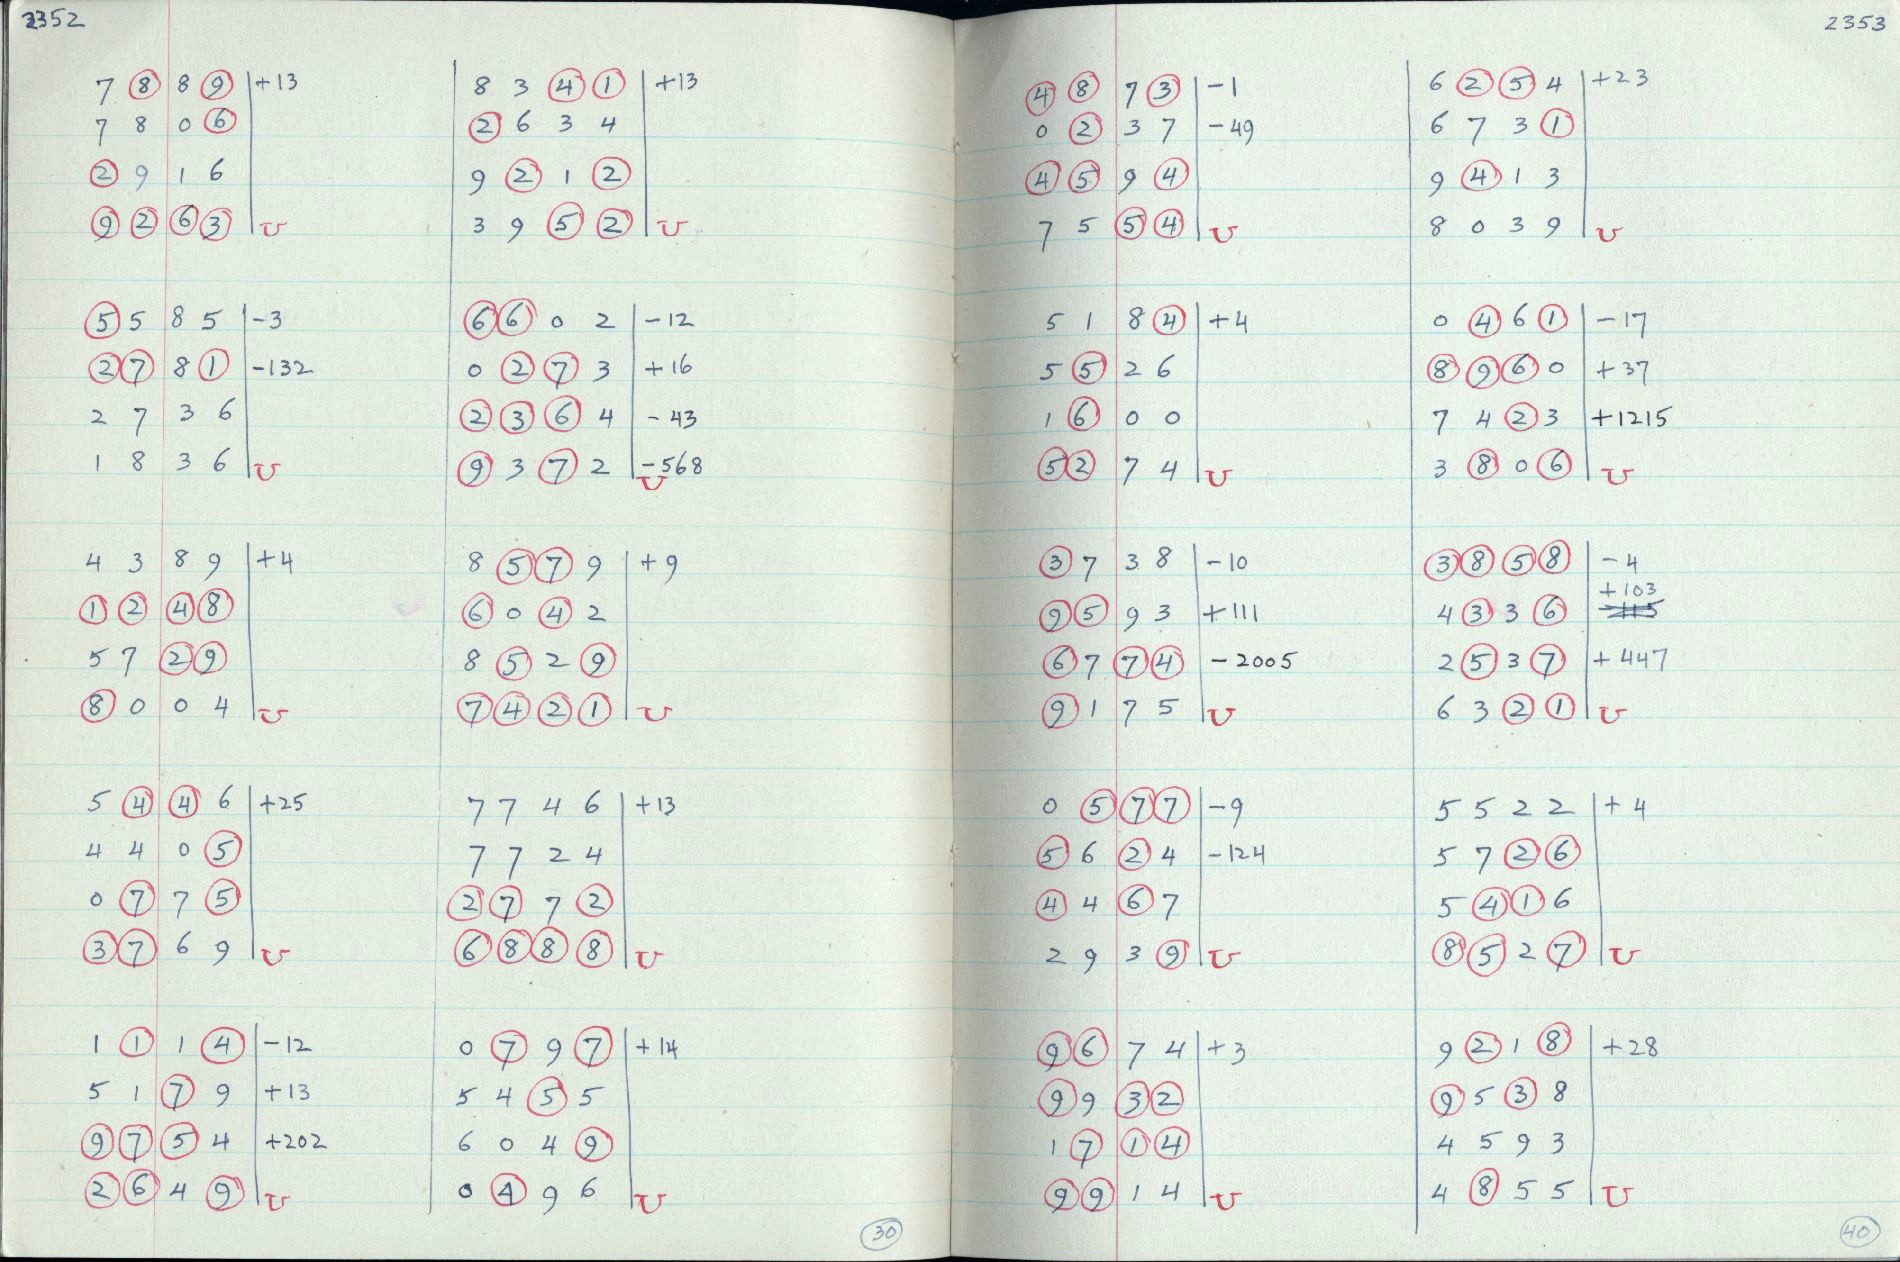 2352
7 8 8 9 +13
7 8 0 6
2 9 1 6
9 2 6 3 U
8 3 4 1 +13
2 6 3 4
9 2 1 2
3 9 5 2 U
5 5 8 5 -3
2 7 8 1 -132
2 7 3 6
1 8 3 6 U
6 6 0 2 -12
0 2 7 3 +16
2 3 6 4 -43
9 3 7 2 -568
U
4 3 8 9 +4
1 2 4 8
5 7 2 9
8 0 0 4 U
8 5 7 9 +9
6 0 4 2
8 5 2 9
7 4 2 1 U
5 4 4 6 +25
4 4 0 5
0 7 7 5
3 7 6 9 U
7 7 4 6 +13
7 7 2 4
2 7 7 2
6 8 8 8 U
1 1 1 4 -12
5 1 7 9 +13
9 7 5 4 +202
2 6 4 9 U
0 7 9 7 +14
5 4 5 5
6 0 4 9
0 4 9 6 U
30
2353
4 8 7 3 -1
0 2 3 7 -49
4 5 9 4
7 5 5 4 U
6 2 5 4 +23
6 7 3 1
9 4 1 3
8 0 3 9 U
5 1 8 4 +4
5 5 2 6
1 6 0 0
5 2 7 4 U
0 4 6 1 -17
8 9 6 0 +37
7 4 2 3 +1215
3 8 0 6 U
3 7 3 8 -10
9 5 9 3 +111
6 7 7 4 -2005
9 1 7 5 U
3 8 5 8 -4
+103
4 3 3 6
2 5 3 7 +447
6 3 2 1 U
0 5 7 7 -9
5 6 2 4 -124
4 4 6 7
2 9 3 9 U
5 5 2 2 +4
5 7 2 6
5 4 1 6
8 5 2 7 U
9 6 7 4 +3
9 9 3 2
1 7 1 4
9 9 1 4 U
9 2 1 8 +28
9 5 3 8
4 5 9 3
4 8 5 5 U
40